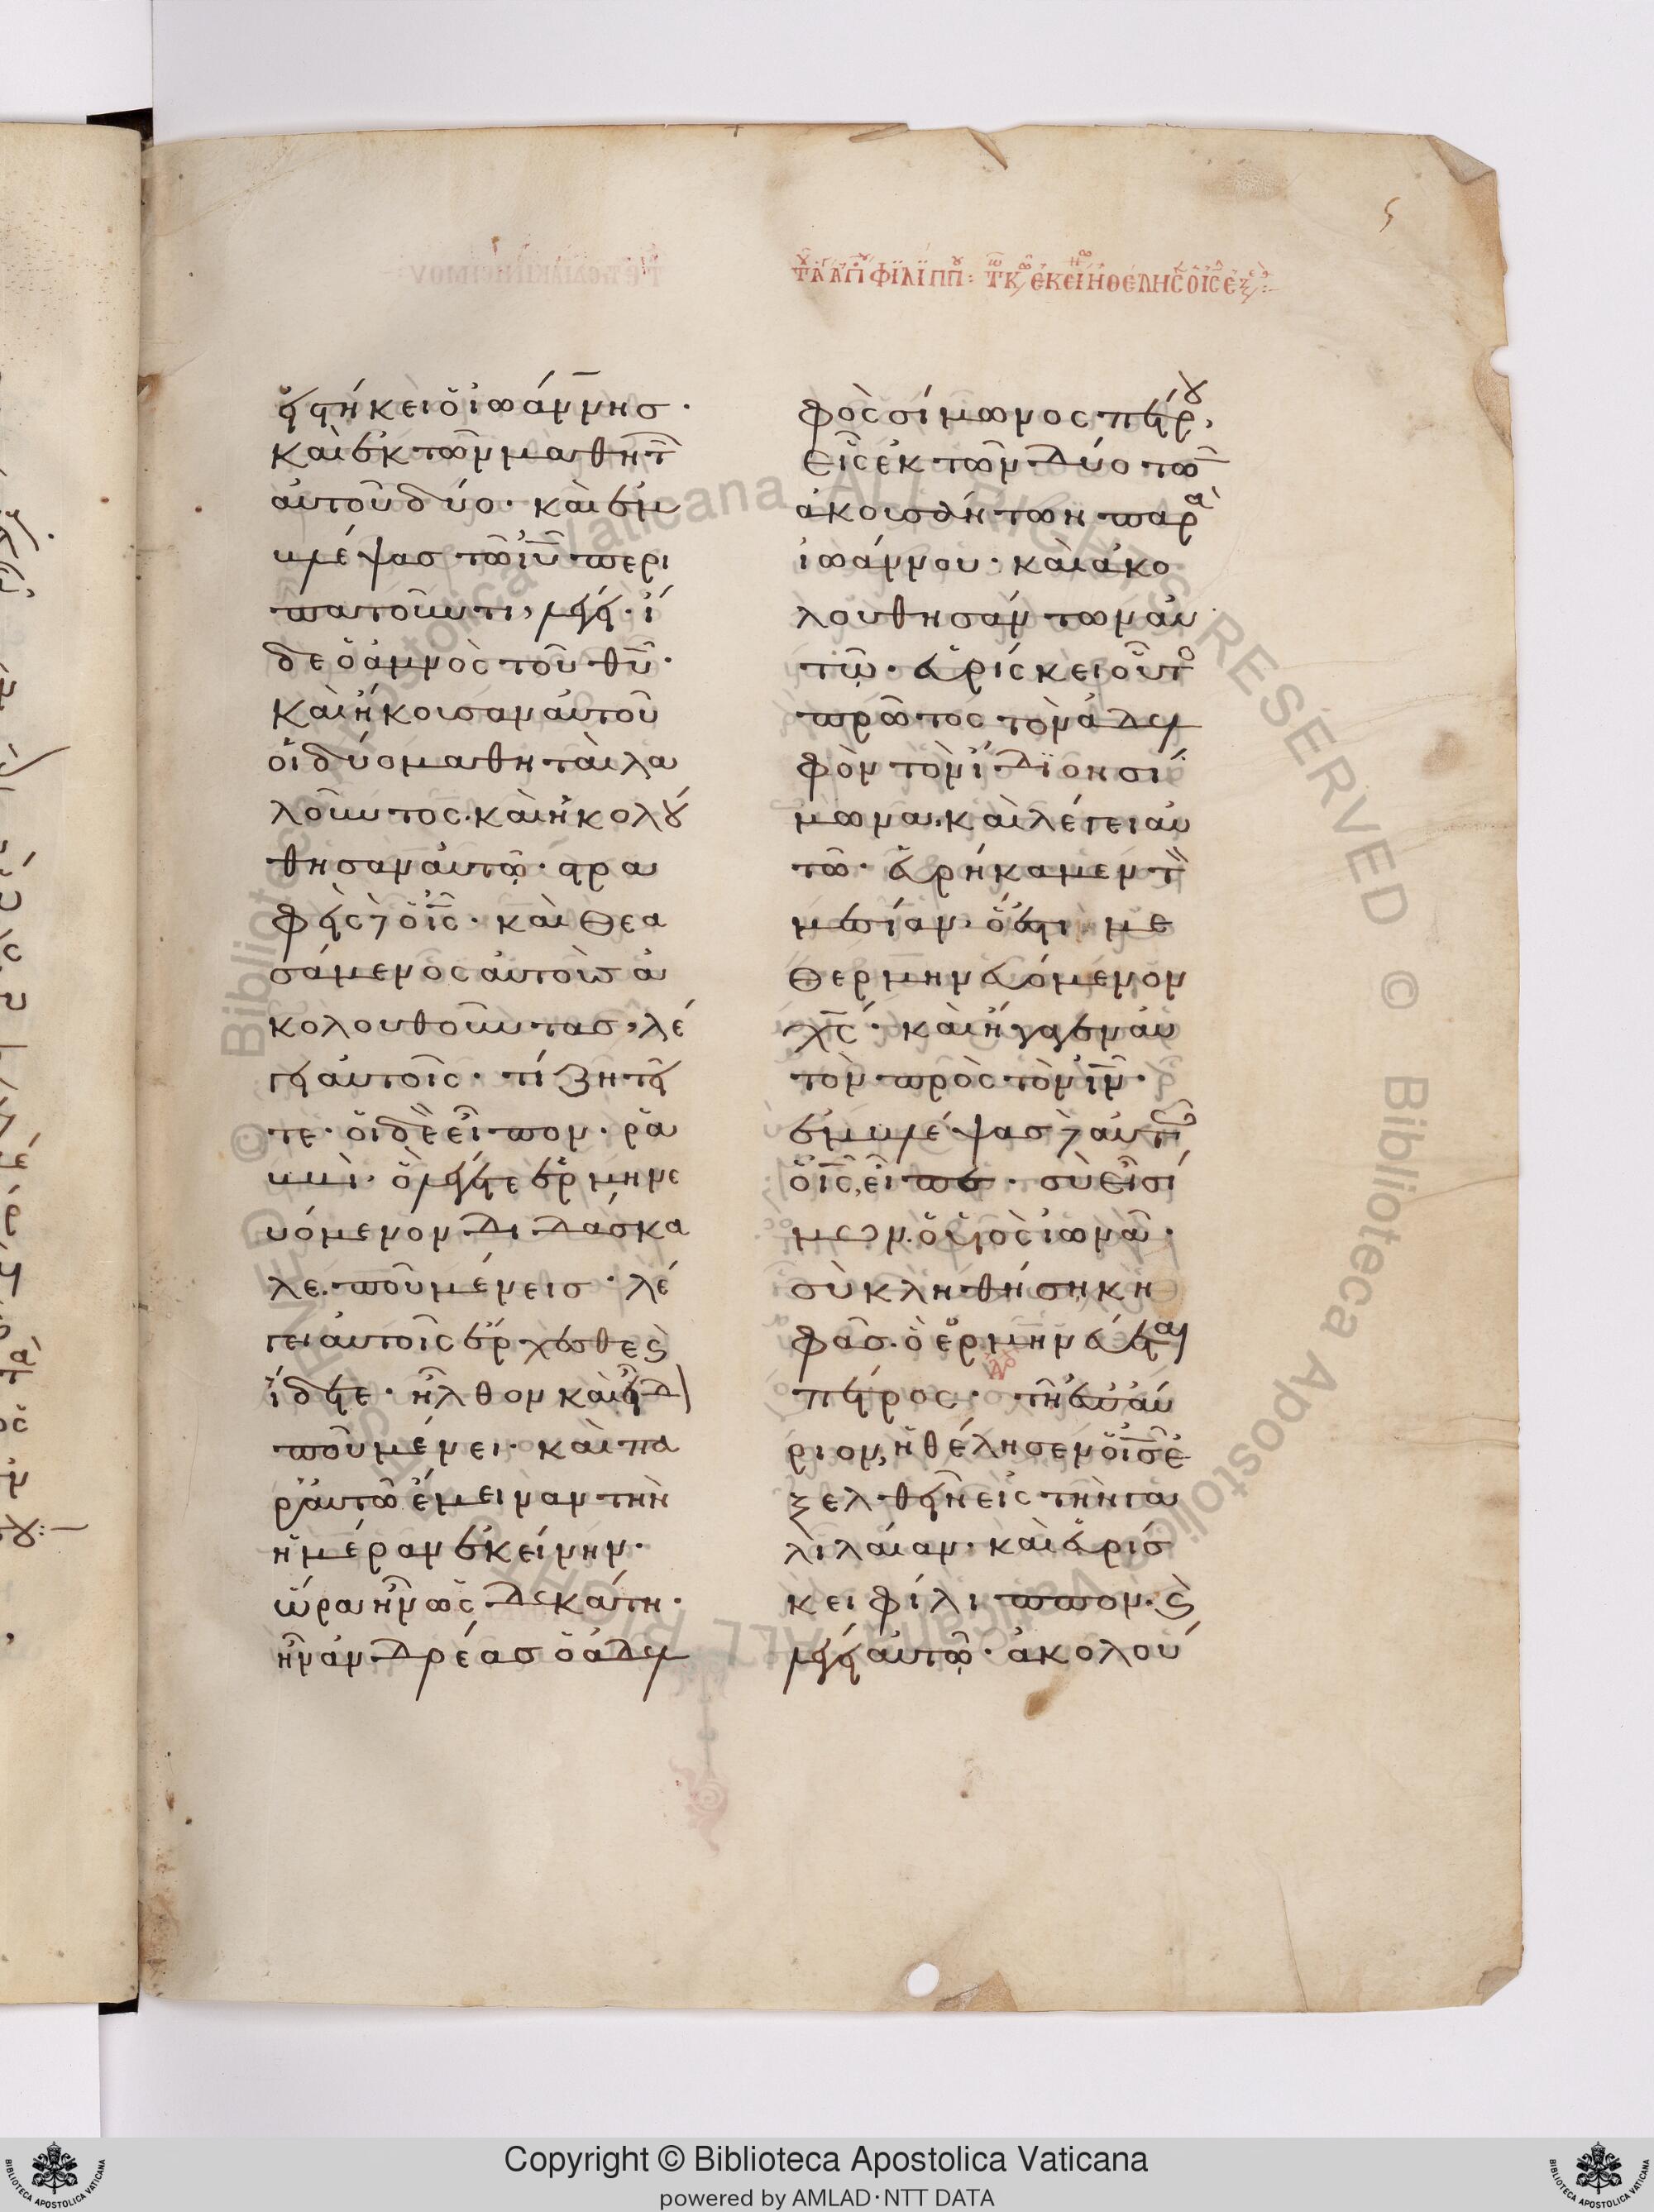 ϛ
τοῦ ἁγίου ἀπο Φιλίππου: τῷ καιρῷ ἐκείνῳ ἠθέλησεν ὁ ις ἐξελ:
ἑστήκει ὁ ἰωάννησ·
καὶ ἐκ τῶν μαθητῶ
αὐτοῦ δύο· καὶ ἐμ
βλέψασ τῶ ιυ περι
πατοῦντι, λέγει· ἴ
δε ὁ ἀμνὸς τοῦ θυ·
καὶ ἤκουσαν αὐτοῦ
οἱ δύο μαθηταὶ λα
λοῦντος· καὶ ἠκολού
θησαν αὐτῶ· στρα
φεὶς δὲ ὁ ις· καὶ θεα
σάμενος αὐτοὺσ ἀ
κολουθοῦντασ, λέ
γει αὐτοῖς· τί ζητεῖ
τε· οἱ δὲ εἶπον· ρα
ββὶ· ὃ λέγεται ἑρμηνε
υόμενον διδάσκα
λε· ποῦ μένεισ· λέ
γει αὐτοῖς ἔρχεσθε ϗ
ἴδετε· ἦλθον καὶ εἶδον
ποῦ μένει· καὶ πα
ρ᾽ αὐτῶ ἔμειναν τὴν
ἡμέραν ἐκείνην·
ὥρα ἦν ὡς δεκάτη·
ἦν ἀνδρέασ ὁ ἀδελ
φὸς σίμωνος πέτρου,
εἷς ἐκ τῶν δύο τῶ
ἀκουσάντων παρὰ
ἰωάννου· καὶ ἀκο
λουθησάντων αὐ
τῶ· εὑρίσκει οὗτο
πρῶτος τὸν ἀδελ
φὸν τὸν ἴδϊον σί
μωνα· καὶ λέγει αὐ
τῶ· εὑρήκαμεν τὸν
μεσίαν· ὅ ἐστι με
θερμηνευόμενον
χς· καὶ ἤγαγεν αὐ
τὸν πρὸς τὸν ιν·
ἐμβλέψασ δὲ αὐτῶ
ὁ ις, εἶπε· σὺ εἶ σί
μων· ὁ υἱὸς ἰωνᾶ·
σὺ κληθήση κη
φᾶσ· ὃ ἑρμηνεύεται
πέτρος· τῆ ἐπαύ
ριον, ἠθέλησεν ὁ ις ἐ
ξελθεῖν εἰς τὴν γα
λιλαίαν· καὶ εὑρίσ
κει φίλιππον· ϗ
λέγει αὐτῶ· ἀκολού
© Biblioteca Apostolica Vaticana ALL RIGHTS RESERVED
Copyright © Biblioteca Apostolica Vaticana
powered by AMLAD·NTT DATA
BIBLIOTECA APOSTOLICA VATICANA
BIBLIOTECA APOSTOLICA VATICANA